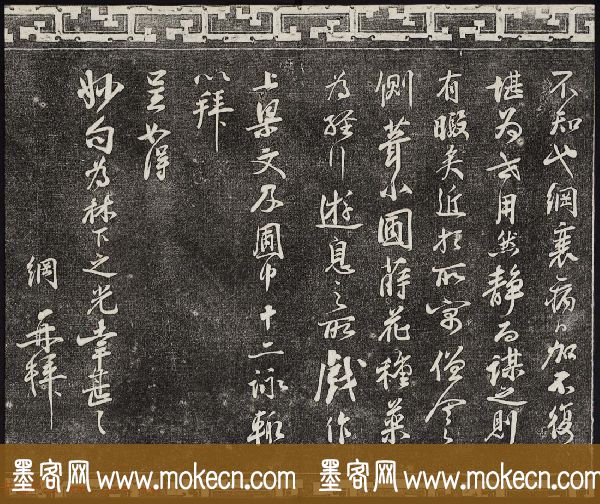 不知也綱衰病日加不復
堪為世用然静而謀之則
有暇矣近於所寓僧舍
側葺小圃蒔花種藥
為經行遊息之所戲作
上梁文及圃中十二詠輒
以拜
呈如得
妙句為林下之光幸甚〻
綱 再拜
墨客网 www.mokecn.com 墨客网 www.mokecn.com